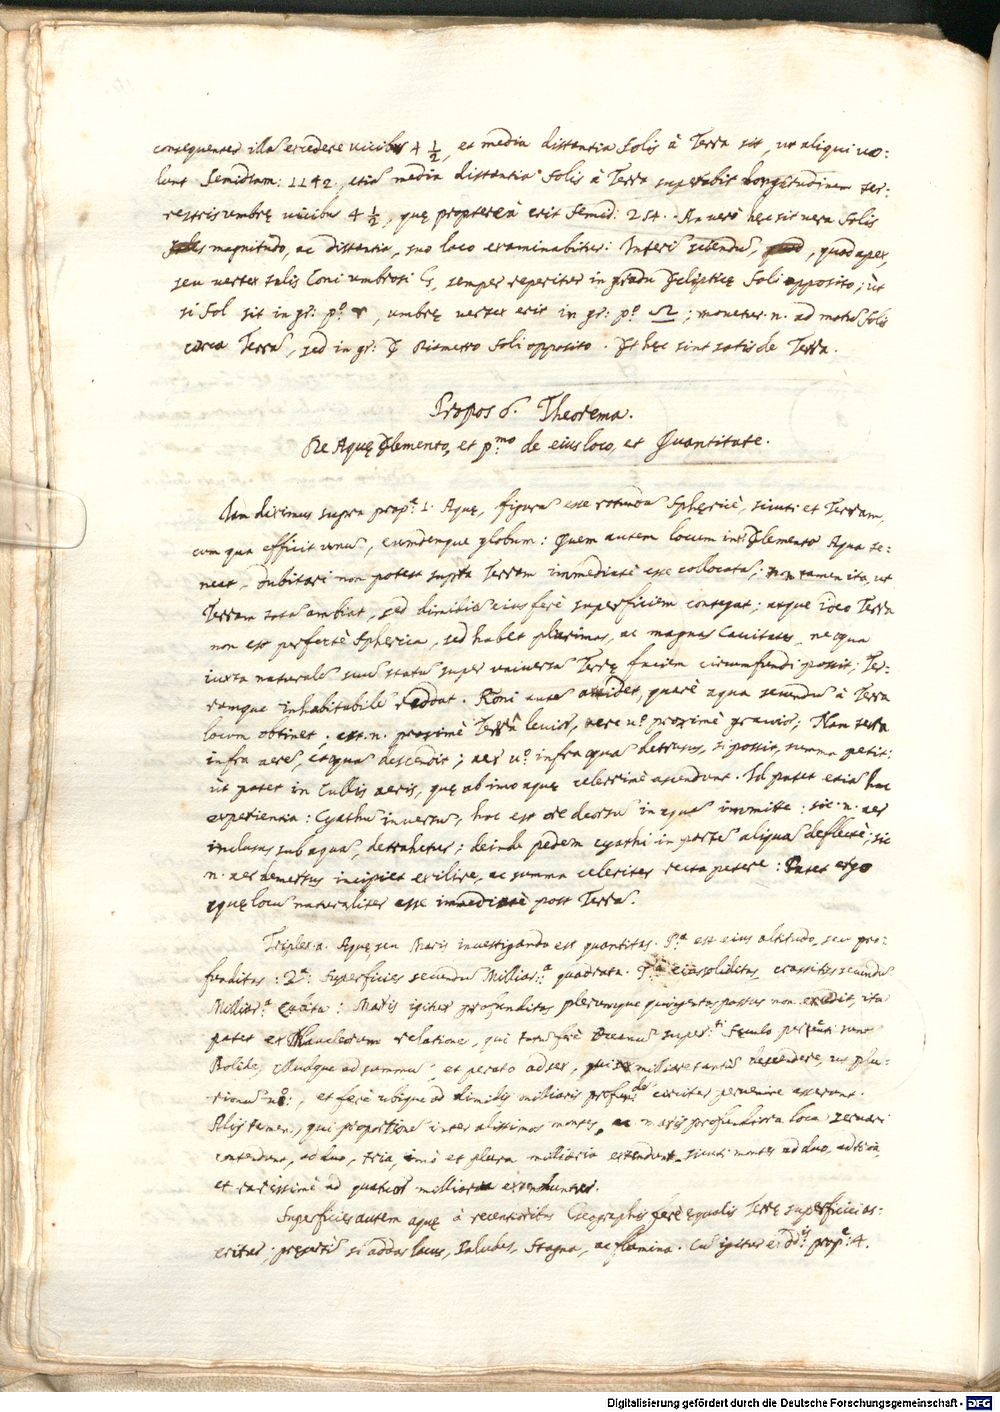 consequenter illū excedere vicibus 4 1/2, et media distantia Solis à Terra sit, ut aliqui vo:
lunt Semidiam: 1142, etiā media distantia Solis à Terra superabit longitudinem ter:
restris umbrę vicibus 4 1/2, quę propterea erit Semid: 254. An verò hęc sit vera Solis
magnitudo, ac distantia, suo loco examinabitur: Interī sciendū, quod apex,
seu vertex talis Coni umbrosi semper reperitur in gradu Eclipticę Soli opposito; ut
si Sol sit in gr: p.º ♈, umbrę vertex erit in gr: p.º ♎; movetur .n. ad motū Solis
circa Terrā, sed in gr: Diametro Soli opposito. Et hęc sint satis de Terra.
Propos 6. Theorema.
De Aquę Elemento, et p.mo de eius loco, et Quantitate.
Iam diximus supra prop.e 1. Aquę, figurā esse rotundā Sphęricè, sicuti et Terram,
cum qua efficit unū, eumdemque globum: Quem autem locum Elementū Aqua te:
neat, dubitari non potest supra Terram immediatè esse collocatā; non tamen ita, ut
Terram totā ambiat, sed dimidiā eius ferè superficiem contegat; atque ideo Terra
non est perfectè Spherica, sed habet plurimas, ac magnas Cavitates, ne aqua
iuxta naturalē suū statū super universā Terrę faciem circumfundi possit; Ter:
ramque inhabitabilē reddat. Roni autē quarè aqua secundū à Terra
locum obtinet; est .n. proximè Terrâ levior, aere v.º proximè gravior; Nam terra
infra aerē, et aquā descendit; aer v.º infra aquā detrusus, si possit, summa petit:
ut patet in Bullis aeris, quę ab imo aquę celerrimè ascendunt. Id patet etiā hac
experientia: Cyathū inversū, hoc est ore deorsū in aquā immitte: sic .n. aer
inclusus sub aquā, detrahetur; deinde pedem cyathi in partē aliquā deflecte; sic
.n. aer demersus incipiet exilire, ac summa celeriter recta petere: Patet ergo
aquę locū naturaliter esse immediatè post Terrā.
Triplex .a. Aquę, seu Maris investiganda est quantitas. P.a est eius altitudo, seu pro:
funditas: 2.a: Superficies secundū Milliar:a quadrata. 3.a eius soliditas, crassities secundū
Milliar.a Cubica: Maris igitur profunditas plerumque quingentos passus non excedit, ita
patet ex Nauclerorum relatione, qui totū ferè Oceanū super:ri Sęculo
Bolide, illudque ad summū, et perato adser, milliare tantū descendere, ut plu:
rimū et ferè ubique ad dimidiū milliaris circiter pervenire asserunt.
Alij tamen, qui proportionē inter altissimos montes, ac maris profundiora loca servari
contendunt, ad duo, tria, imò et plura miliaria extendunt, sicuti montes ad duo, ad tria,
et rarissimè ad quatuor milliaria extenduntur.
Superficies autem aquę à recentioribus Geographis ferè ęqualis Terrę superficiei as:
seritur; pręsertī si addas lacus, Paludes, Stagna, ac flumina. Cū igitur prop.e: 4.